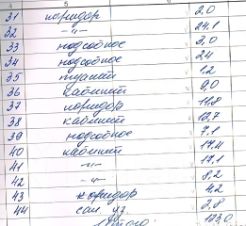 4 5
31 коридор 2,0
32 —"— 24,1
33 подсобное 3,0
34 подсобное 24
35 туалет 1,2
36 кабинет 9,0
37 коридор 11,8
38 кабинет 12,7
39 подсобное 7,1
40 кабинет 17,4
41 —"— 17,1
42 —"— 8,2
43 коридор 4,2
44 сан. уз. 2,8
Итого: